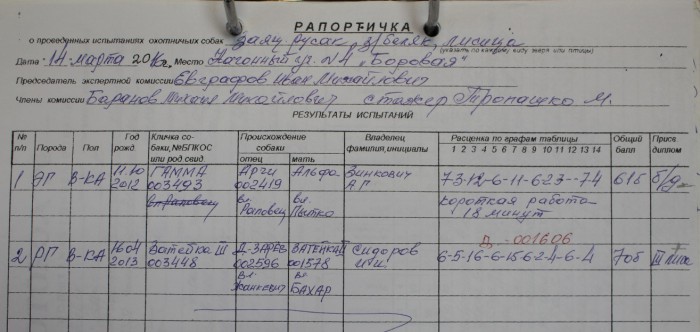 РАПОРТИЧКА
о проведенных испытаниях охотничьих собак заяц русак, з/беляк, лисица
(указать по каждому виду зверя или птицы)
Дата 14 марта 2016г. Место Нагонный уч. №4 „Боровая"
Председатель экспертной комиссии Евграфов Иван Михайлович
Члены комиссии Баранов Михаил Михайлович стажер М.
РЕЗУЛЬТАТЫ ИСПЫТАНИЙ
№ п/п Порода Пол Год рожд. Кличка собаки, №БПКОС или род свид. Происхождение собаки отец мать Владелец фамилия, инициалы Расценка по графам таблицы 1 2 3 4 5 6 7 8 9 10 11 12 13 14 Общий балл Присв. диплом
1 ЭГ В-КА 11.10 2012 ГАММА 003493 Арчи 002419 Альфа Зинкович А.Г. 7-3-12-6-11-6-2-3--7-4 61б б/д
вл. Раловец вл. короткая работа
18 минут
Д. -001606
2 РГ В-КА 16.04 2013 Ватейка III 003448 002596 ВАТЕЙКА II 001578 Сидоров 6-5-16-6-15-6-2-4-6-4 70б III
вл. вл. БАХАР